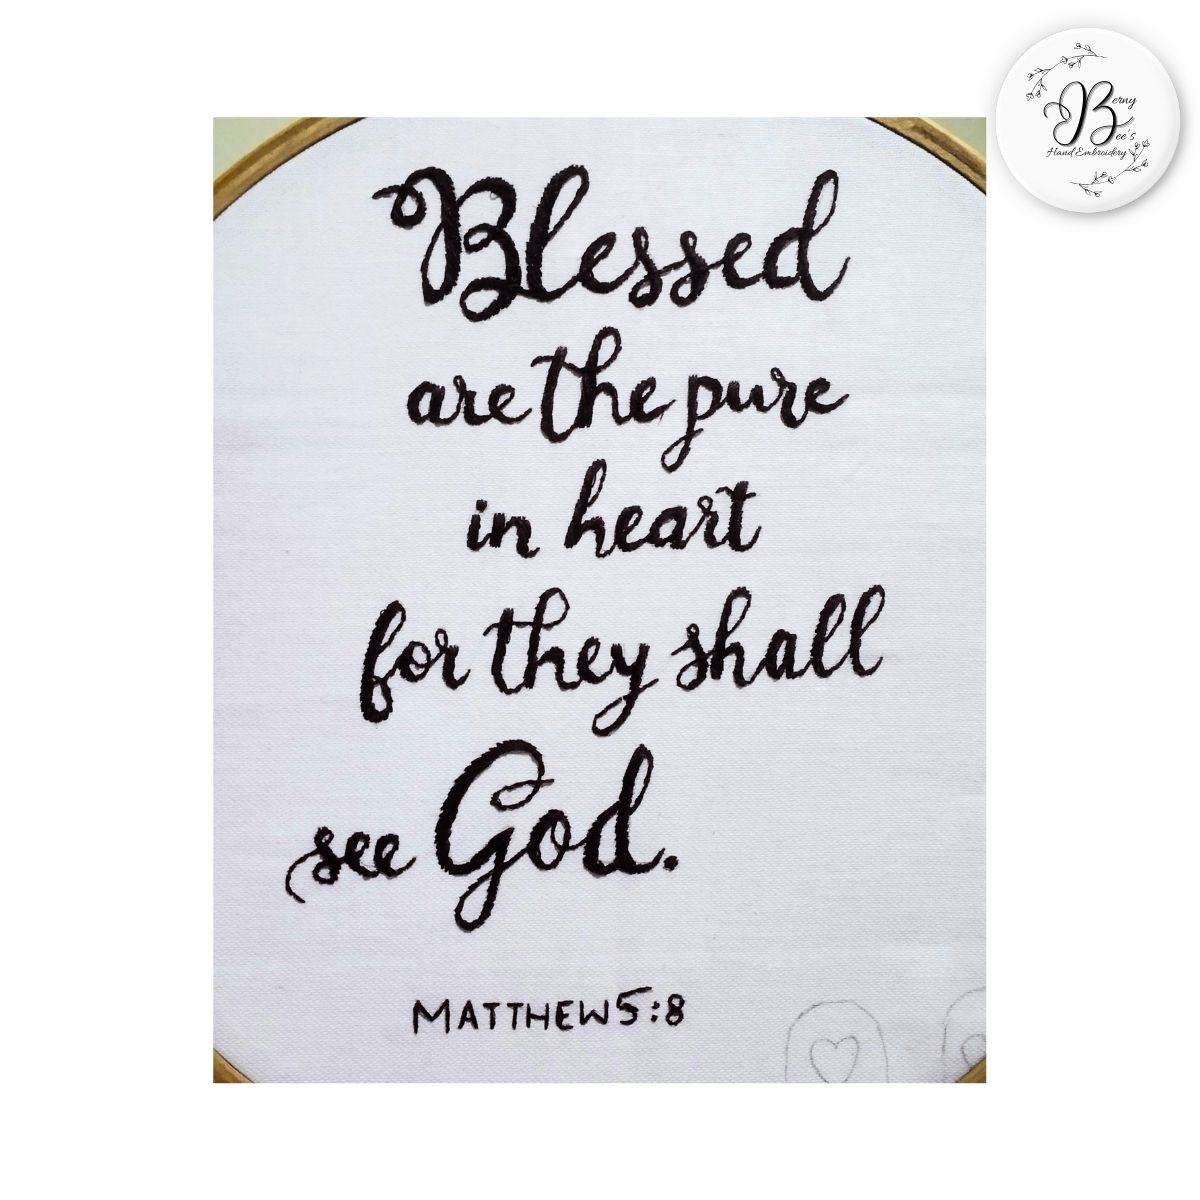 Berny
Bee's
Hand Embroidery
Blessed
are the pure
in heart
for they shall
see God.
MATTHEW 5:8